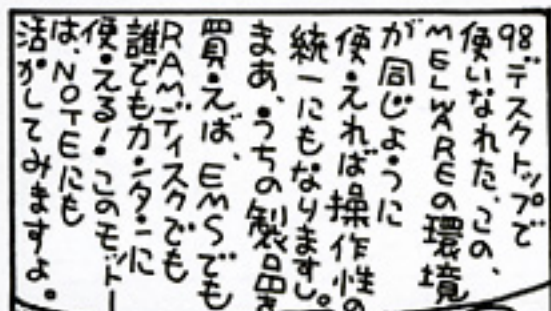 98デスクトップで
使いなれた、この、
MELWAREの環境
が同じように
使えれば操作性の
統一にもなりますし。
まあ、うちの製品を
買えば、EMSでも
RAMディスクでも
誰でもカンタンに
使える!このモットー
は、NOTEにも
活かしてみますよ。